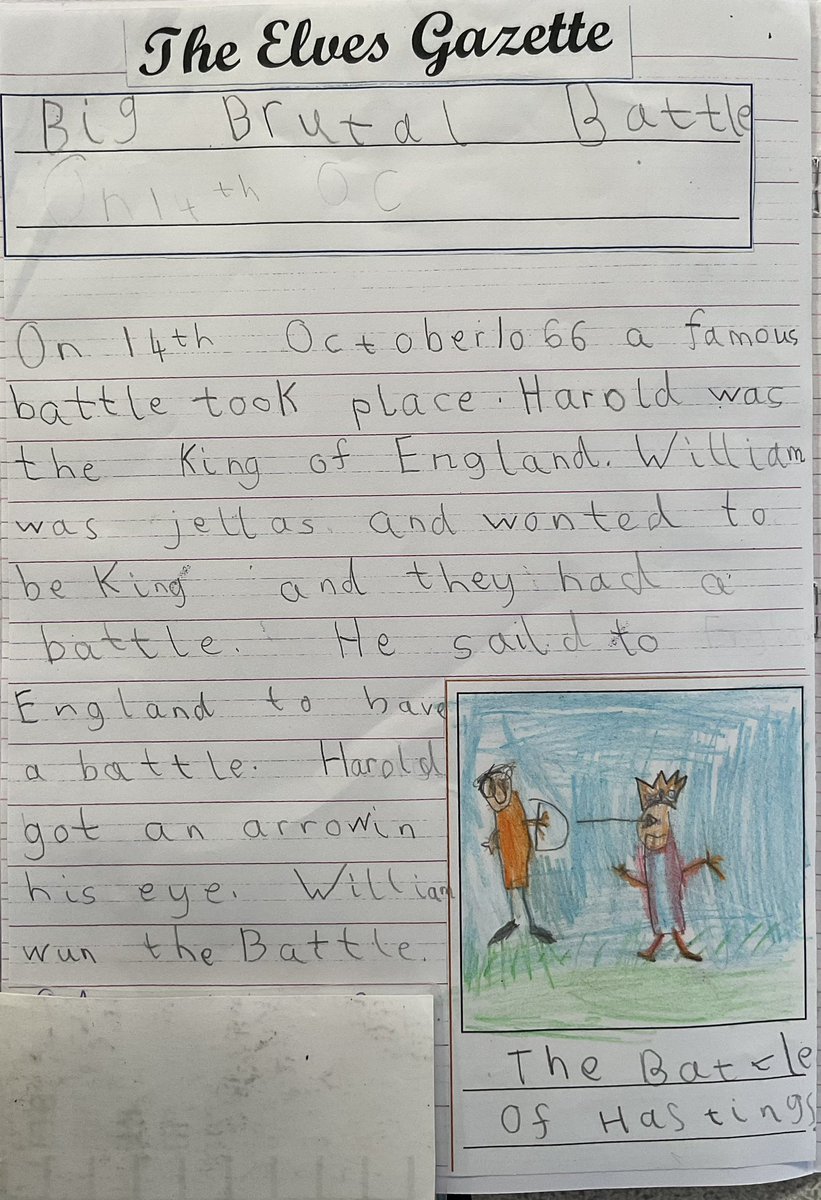 The Elves Gazette
Big Brutal Battle
On 14th Oc
On 14th October 1066 a famous
battle took place. Harold was
the King of England. William
was jellas and wonted to
be King and they had a
battle. He saild to
England to have
a battle. Harold
got an arrow in
his eye. William
wun the Battle.
The Battle
Of Hastings